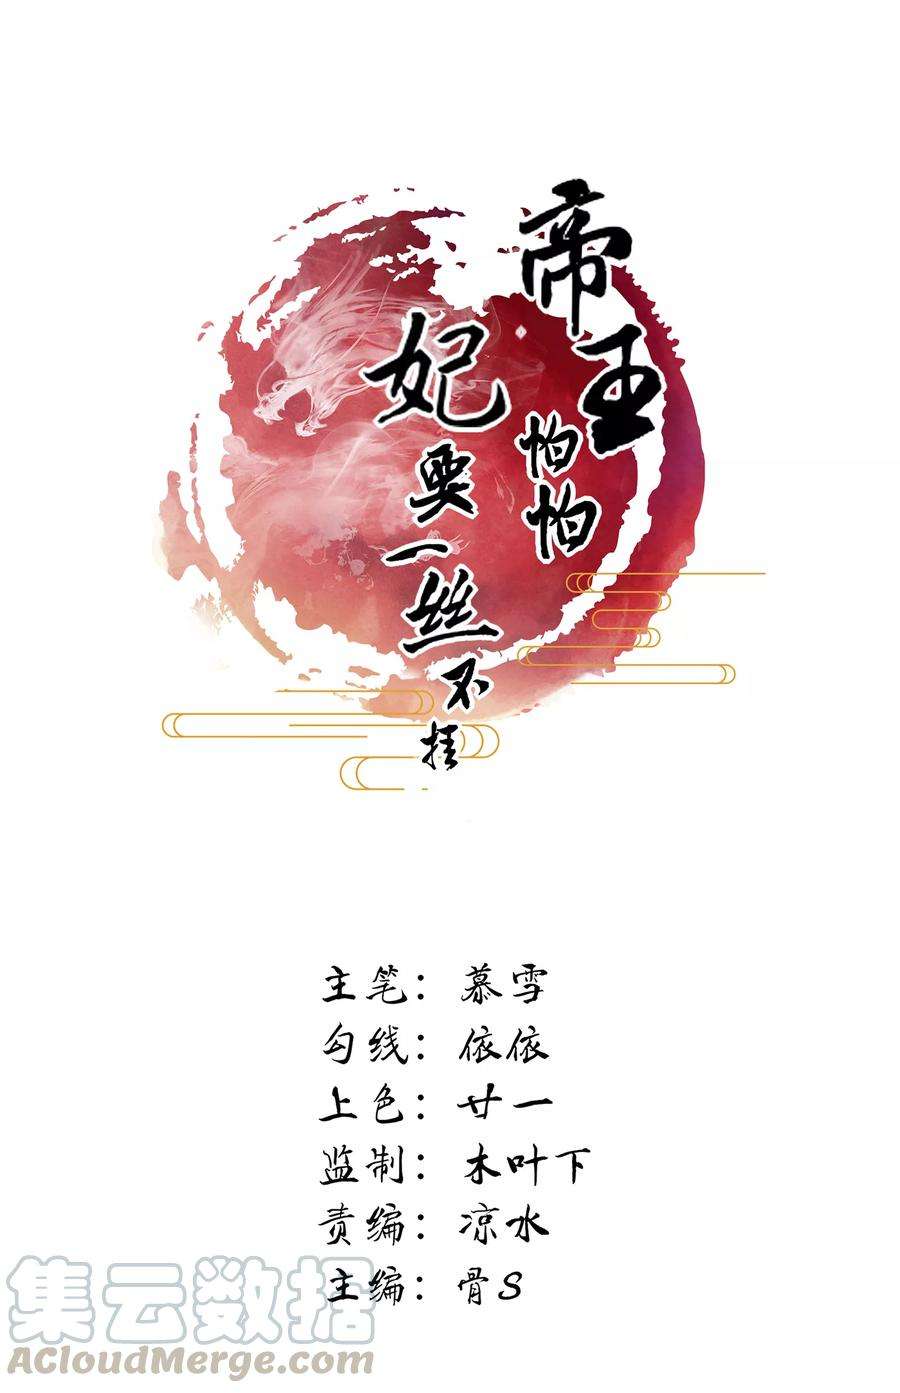 帝王怕怕
妃要一丝不挂
主笔：慕雪
勾线：依依
上色：廿一
监制：木叶下
责编：凉水
主编：骨S
集云数据
ACloudMerge.com